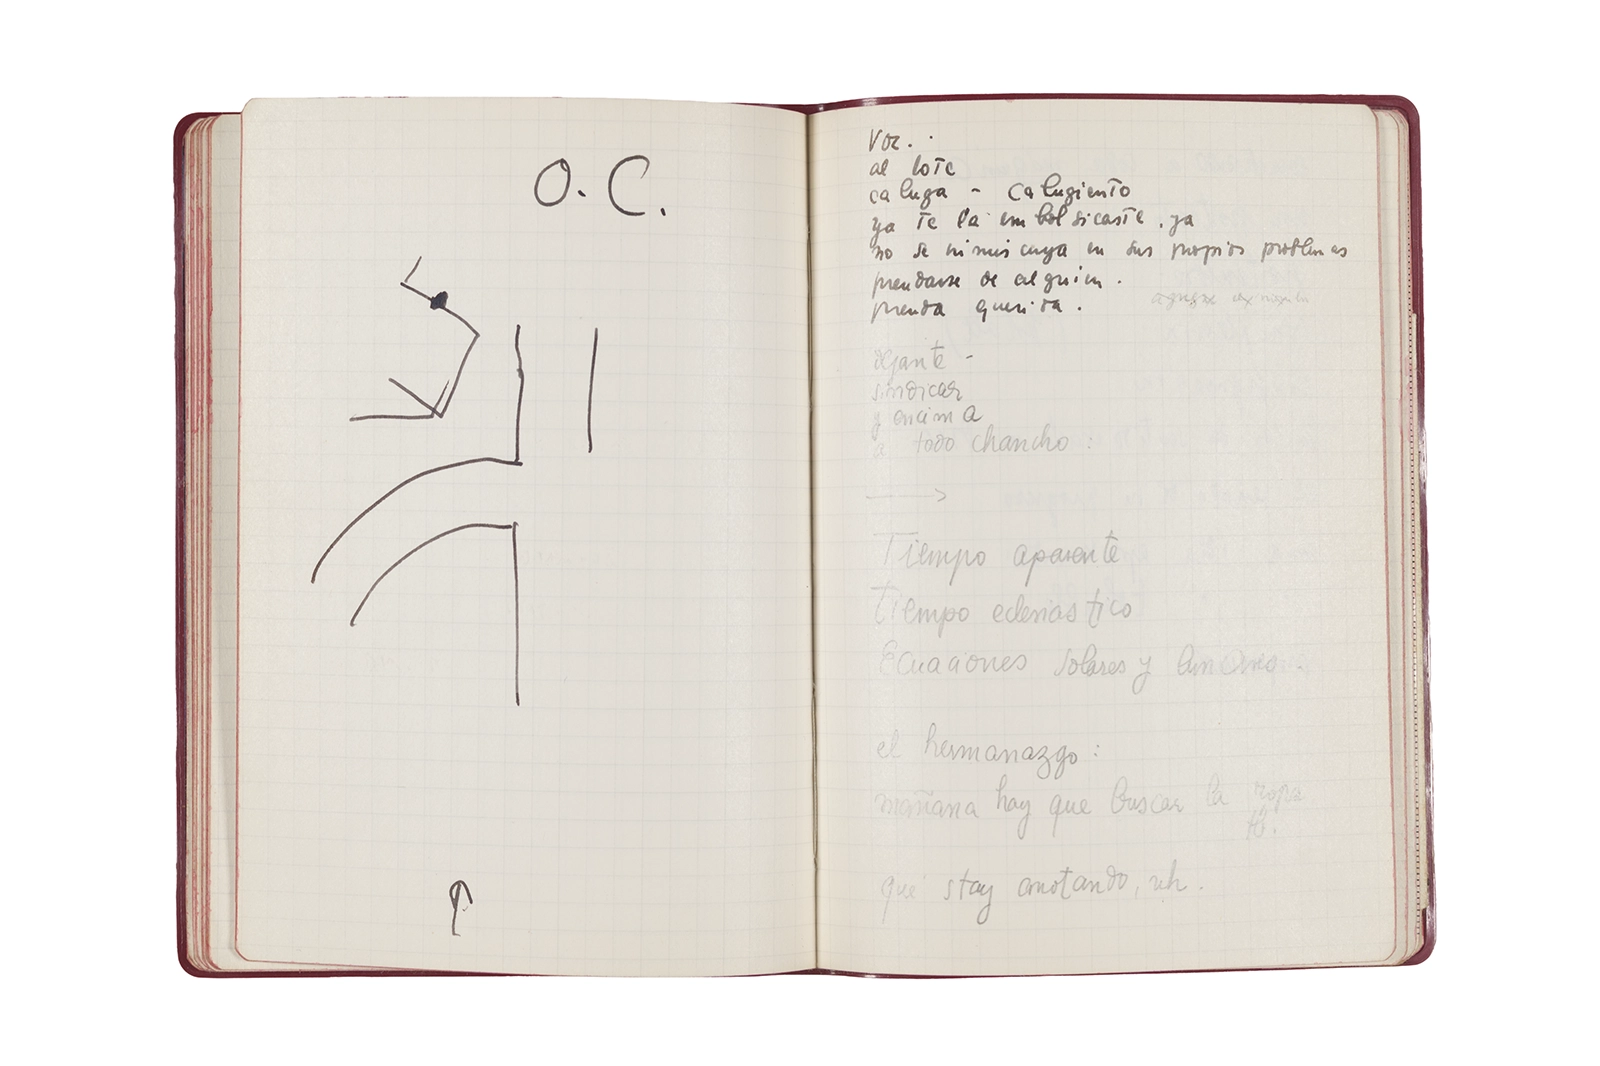 O. C.
Voz.
al lote
caluga - calugiento
ya te la embolsicaste. ya
no se inmiscuya en sus propios problemas
prendarse de alguien.
prenda querida.
dejante -
sindicar
y encima
a todo chancho:
Tiempo aparente
Tiempo eclesiastico
Ecuaciones solares y
el hermanazgo:
mañana hay que buscar la ropa
qué stay anotando, uh.